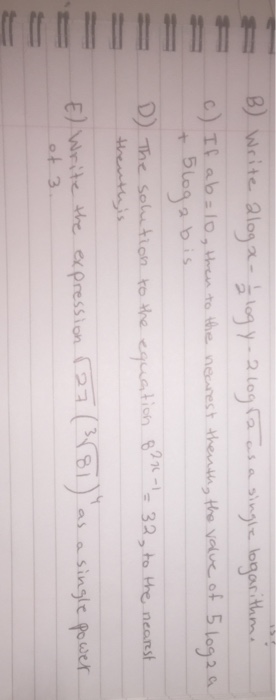 is?
B) Write 2log x - ½ log y - 2 log √2 as a single logarithm.
C) If ab = 10, then to the nearest thenth, the value of 5 log2 a
+ 5 log2 b is
D) The solution to the equation 8^(2x-1) = 32, to the nearest
thenth, is
E) Write the expression √27 (³√81)⁴ as a single power
of 3.